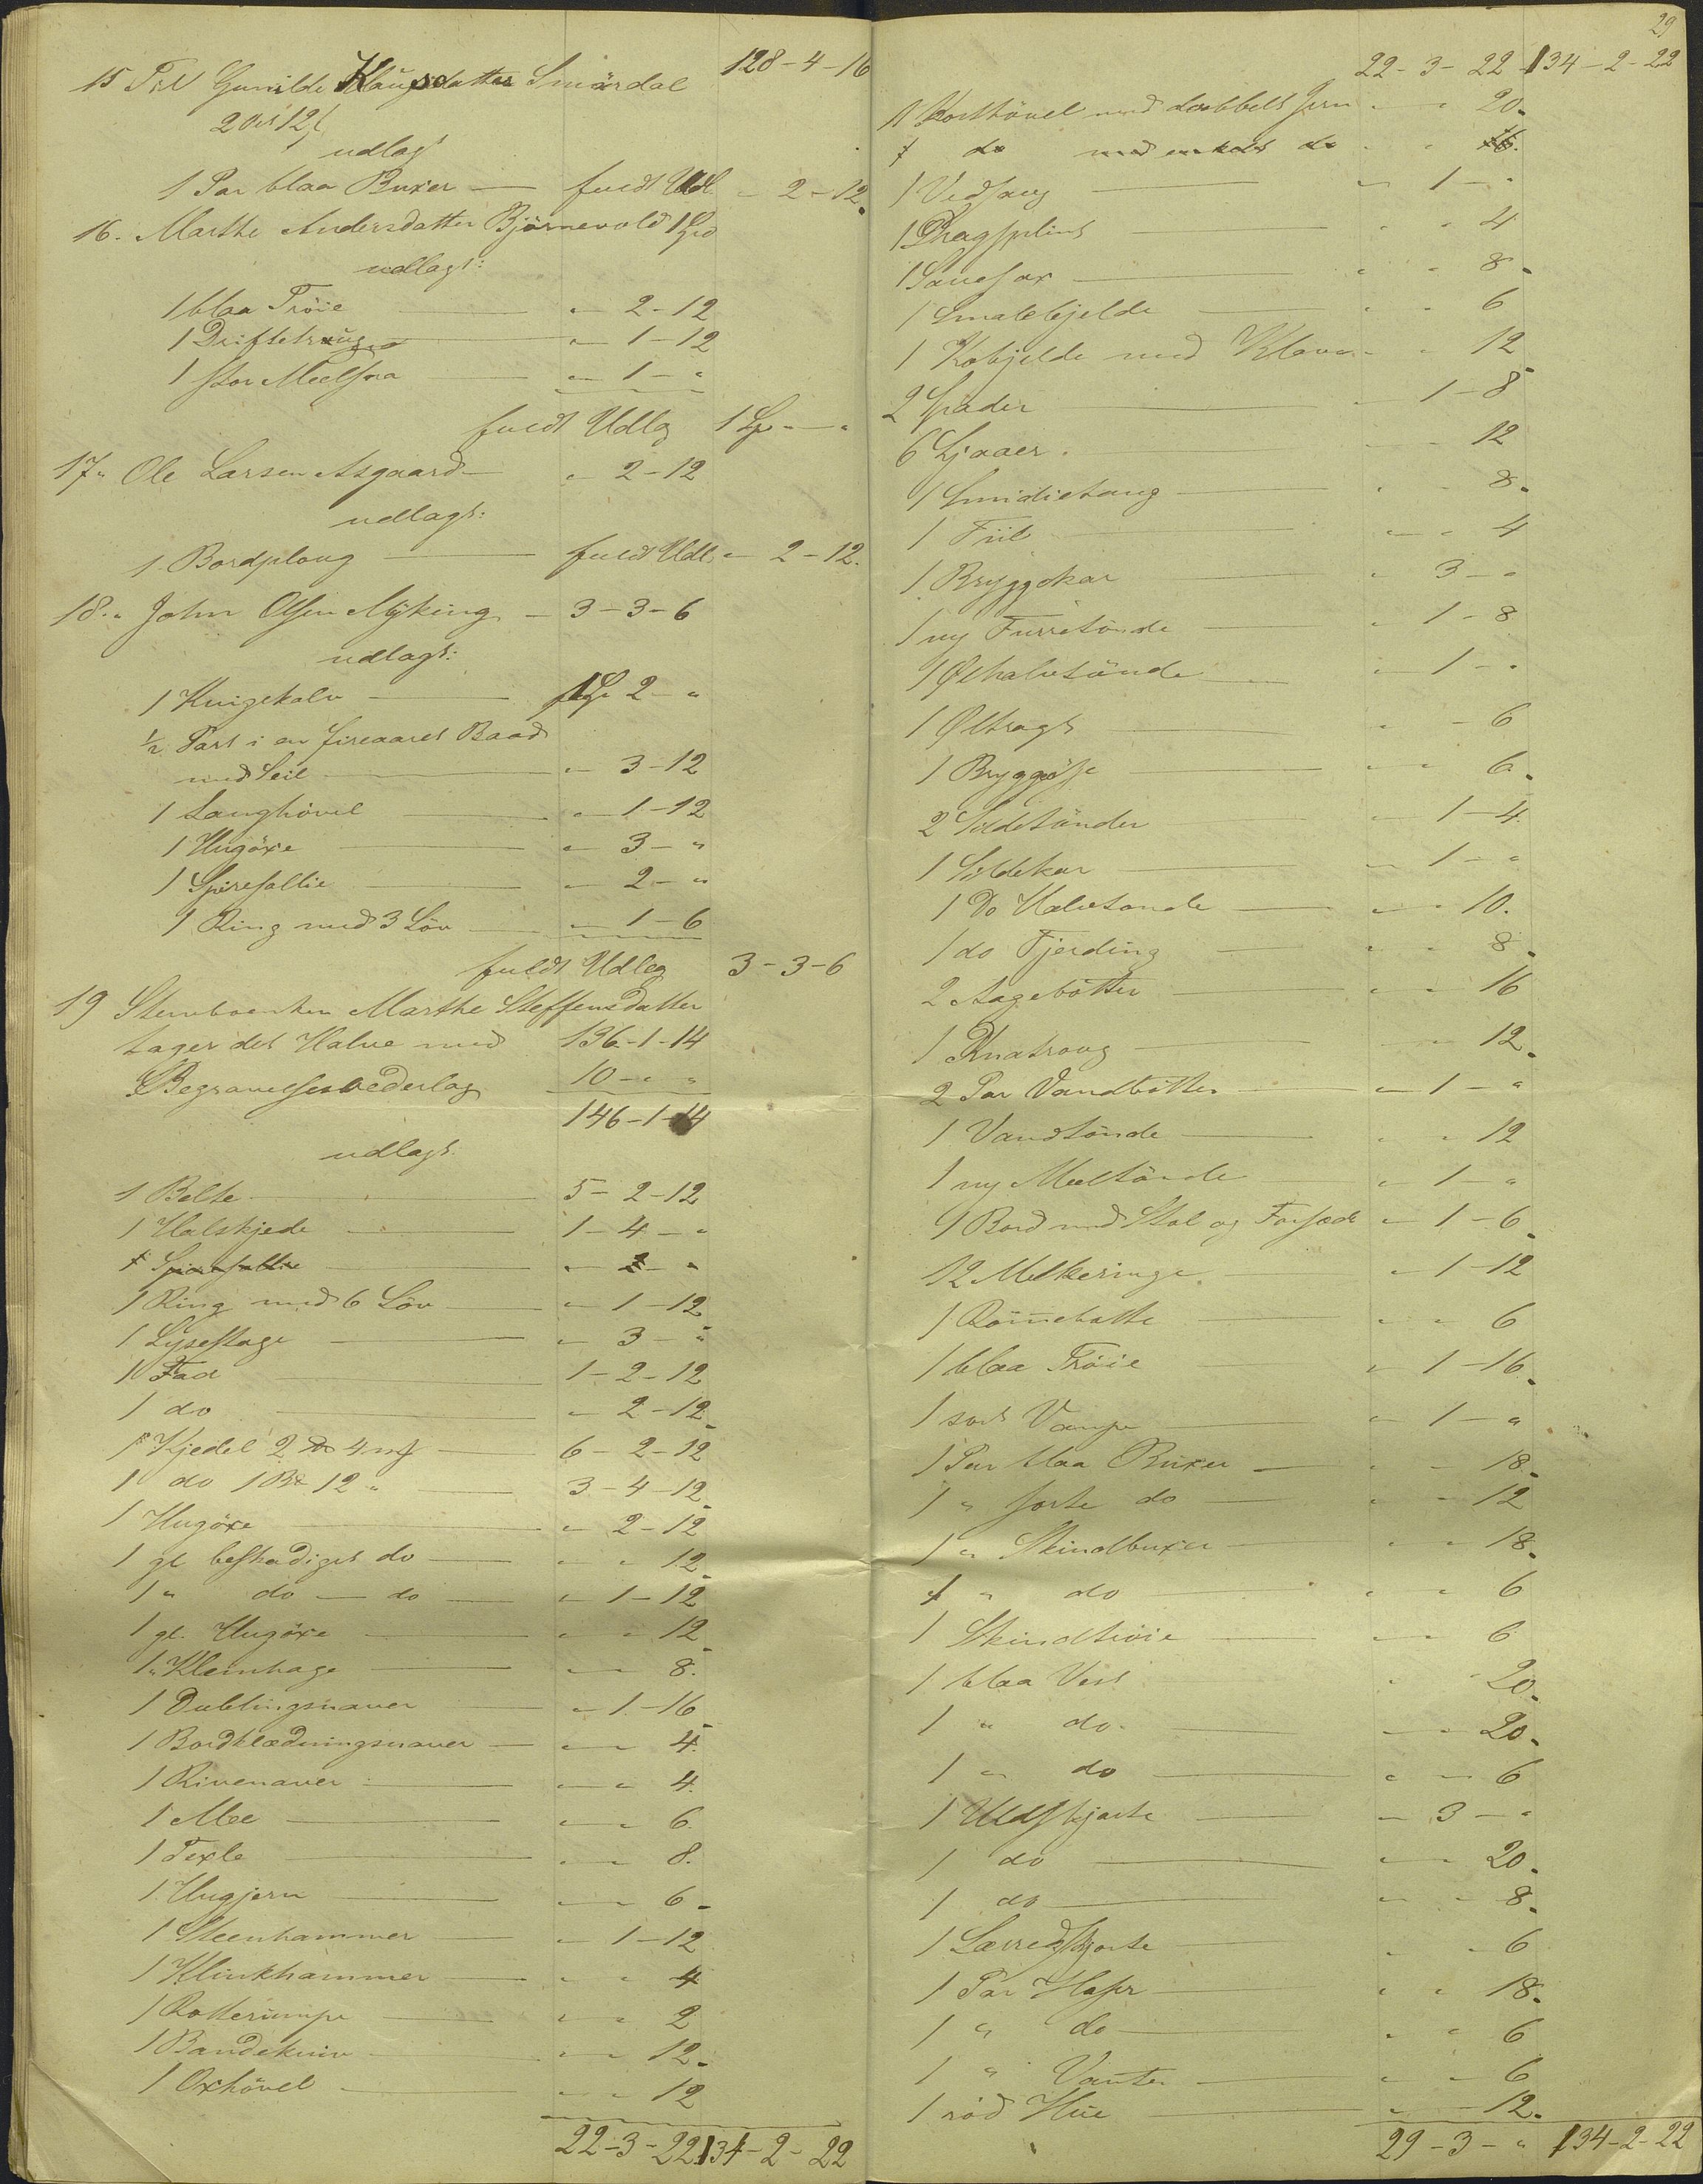 128-4-16
15 Til Gunilde Klausdatter Smørdal
2 Ort 12 ß
udlagt
1 Par blaa Buxer — fuldt Udl. " - 2 - 12.
16. Marthe Andersdatter Bjørnevold 1 Spd
udlagt:
1 blaa Trøie — " 2-12
1 Driftetroug — " 1-12
1 stor Meelsaa — " 1 - "
fuldt Udlæg 1 Sp - " - "
17. Ole Larsen Asgaard — " 2-12
udlagt:
1 Bordploug — fuldt Udl. " 2-12.
18. John Olsen Myking — 3-3-6
udlagt:
1 Kvigekalv — 1 Sp 2 - "
1/2 Part i en fireaaret Baad
med Seil — " 3-12
1 Langhøvel — " 1-12
1 Hugøxe — " 3 - "
1 Spiresallie — " 2 - "
1 Ring med 3 Løv — " 1-6
fuldt Udlæg 3-3-6
19 Stervboenken Marthe Steffensdatter
tager det Halve med 136-1-14
Begravelsesvederlag 10 - " - "
146-1-14
udlagt.
1 Belte — 5-2-12
1 Halskjede — 1-4 - "
1 Spiresallie — " 2 - "
1 Ring med 6 Løv — " 1-12
1 Lysestage — " 3 - "
1 Fad — 1-2-12
1 do — " 2-12
1 Kjedel 2 Bd 4 mk — 6-2-12
1 do 1 Bd 12 " — 3-4-12
1 Hugøxe — " 2-12
1 gl beskadiget do — " " 12
1 " do — do — " 1-12
1 gl. Hugøxe — " " 12
1 " Klemhage — " " 8.
1 Dublingsnaver — " 1-16
1 Bordklædningsnaver — " " 4.
1 Rivenaver — " " 4.
1 Mee — " " 6.
1 Texle — " " 8.
1 Hugjern — " " 6
1 Steenhammer — " 1-12
1 Klinkhammer — " " 4
1 Rotterumpe — " " 2
1 Bandekniv — " " 12
1 Oxhøvel — " " 12
22-3-22 134-2-22
29
22-3-22 134-2-22
1 Korthøvel med dobbelt Jern " " 20.
1 do med enkelt do " " 16.
1 Vedsaug — " 1 - "
1 Dragsplint — " " 4
1 Sauesax — " " 8
1 Smalebjelde — " " 6
1 Kobjelde med Klave " " 12
2 Spader — " 1-8
6 Ljaaer. — " " 12
1 Smidietang — " " 8.
1 Fiil — " " 4
1 Bryggekar — " 3 - "
1 ny Furretønde — " 1-8
1 Ølhalvtønde — " 1 - "
1 Øltragt — " " 6
1 Bryggøse — " " 6.
2 Sildetønder — " 1-4
1 Sildekar — " 1 - "
1 Do Halvtønde — " " 10.
1 do Fjerding — " " 8.
2 Agebøtter — " " 16
1 Knatroug — " " 12.
2 Par Vandbøtter — " 1 - "
1 Vandtønde — " " 12
1 ny Meeltønde — " 1 - "
1 Bord med Stol og Forsæde " 1-6
12 Melkeringe. — " 1-12
1 Rømmebøtte — " " 6
1 blaa Trøie — " 1-16
1 sort Vampe — " 1 - "
1 Par blaa Buxer — " " 18.
1 " sorte do — " " 12
1 " Skindbuxer — " " 18.
1 " do — " " 6
1 Skindtrøie — " " 6
1 blaa Vest — " " 20.
1 " do — " " 20.
1 " do — " " 6
1 Uldskjorte — " 3 - "
1 do — " " 20.
1 do — " " 8.
1 Lærredsskjorte — " " 6
1 Par Hoser — " " 18.
1 " do — " " 6
1 " Vanter — " " 6
1 rød Hue — " " 12.
29-3 - " 134-2-22